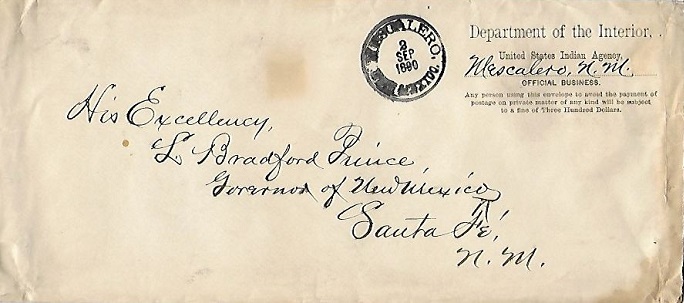 MESCALERO,
2
SEP
1890
Department of the Interior,
United States Indian Agency,
Mescalero, N. M.
OFFICIAL BUSINESS.
Any person using this envelope to avoid the payment of
postage on private matter of any kind will be subject
to a fine of Three Hundred Dollars.
His Excellency,
L Bradford Prince,
Governor of New Mexico
Santa Fé,
N. M.